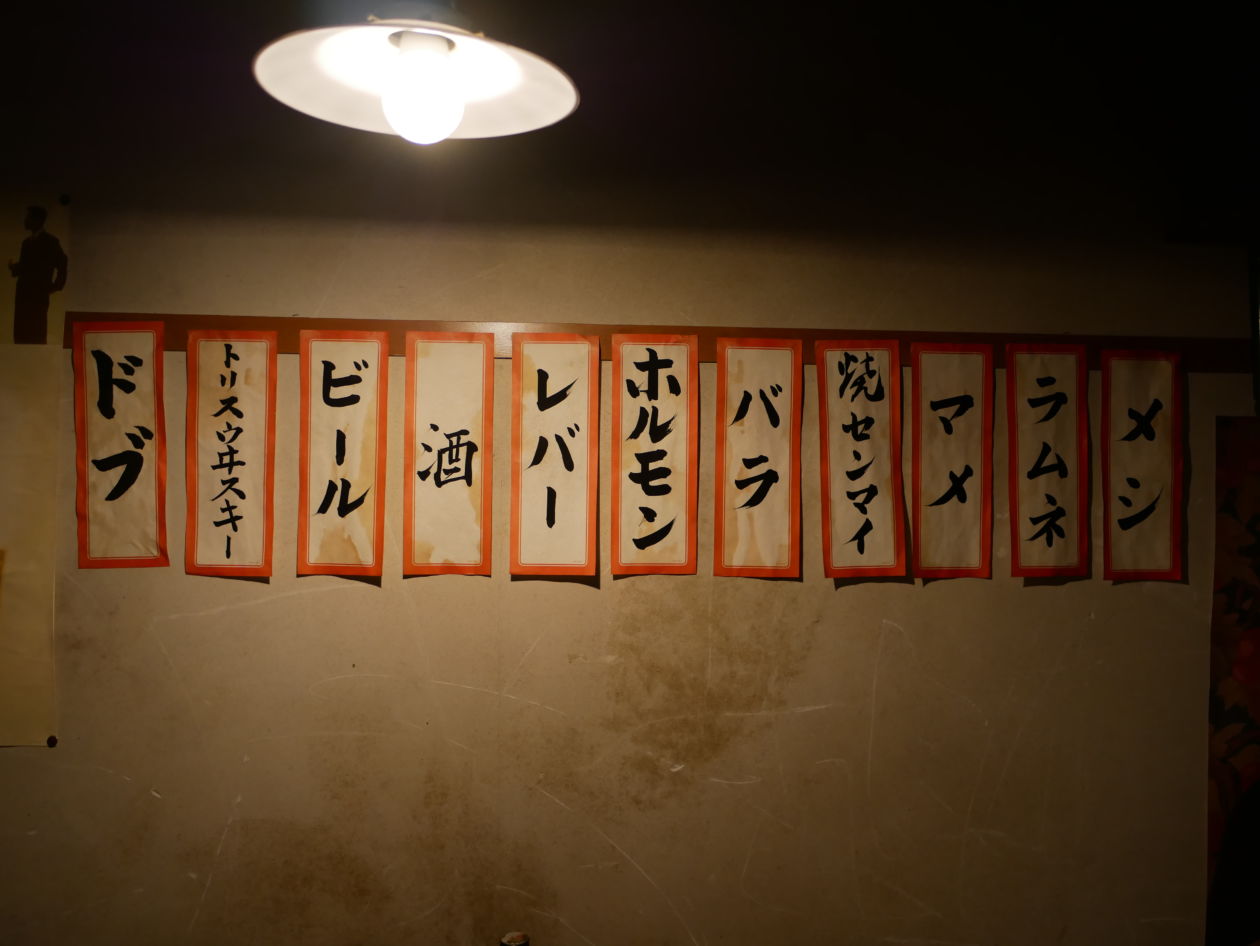 メシ
ラムネ
マメ
焼センマイ
バラ
ホルモン
レバー
酒
ビール
トリスウヰスキー
ドブ